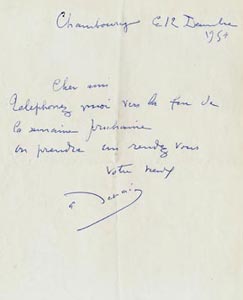 Chambourcy le 12 Decembre
195
Cher ami
telephonez moi vers la fin de
la semaine prochaine
on prendra un rendez vous
votre vieux
a Derain